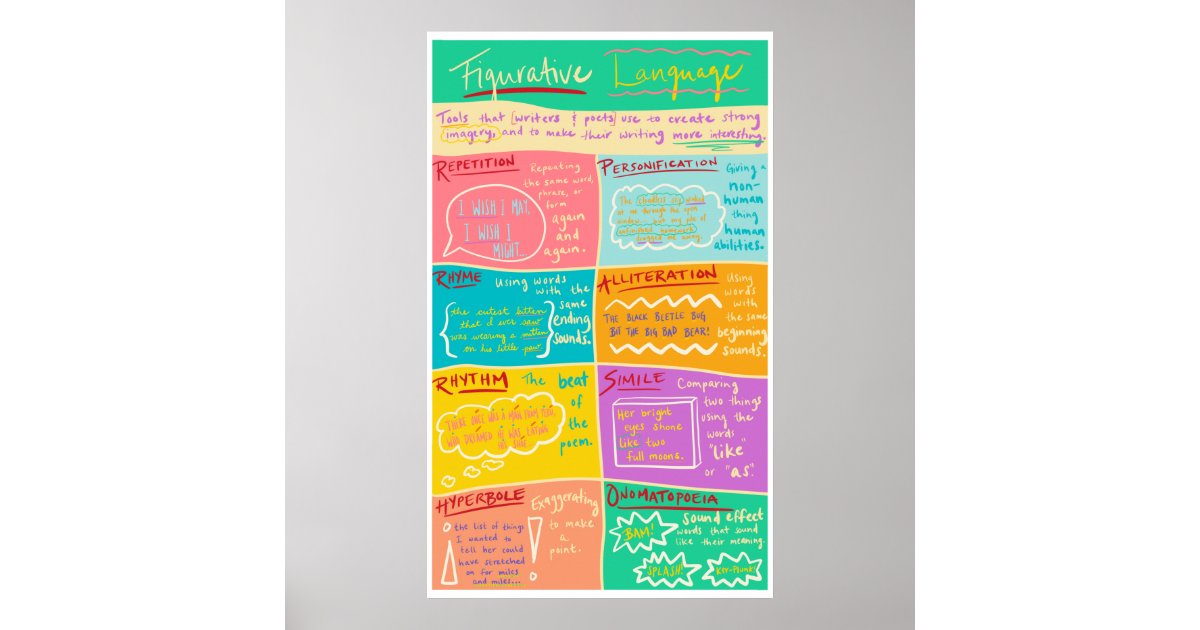 Figurative Language
Tools that [writers & poets] use to create strong
imagery, and to make their writing more interesting.
REPETITION
Repeating
the same word,
phrase, or
form
again
and
again.
I WISH I MAY,
I WISH I
MIGHT...
PERSONIFICATION
Giving a
non-
human
thing
human
abilities.
The cloudless sky winked
at me through the open
window... but my pile of
unfinished homework
dragged me away.
RHYME
Using words
with the
same
ending
sounds.
the cutest kitten
that I ever saw
was wearing a mitten
on his little paw.
ALLITERATION
Using
words
with
the same
beginning
sounds.
THE BLACK BEETLE BUG
BIT THE BIG BAD BEAR!
RHYTHM
The beat
of
the
poem.
THERE ONCE WAS A MAN FROM PERU,
WHO DREAMED HE WAS EATING
HIS SHOE
SIMILE
Comparing
two things
using the
words
"like"
or "as".
Her bright
eyes shone
like two
full moons.
HYPERBOLE
Exaggerating
to make
a
point.
the list of things
I wanted to
tell her could
have stretched
on for miles
and miles...
ONOMATOPOEIA
sound effect
words that sound
like their meaning.
BAM!
SPLASH!
Ker-Plunk!